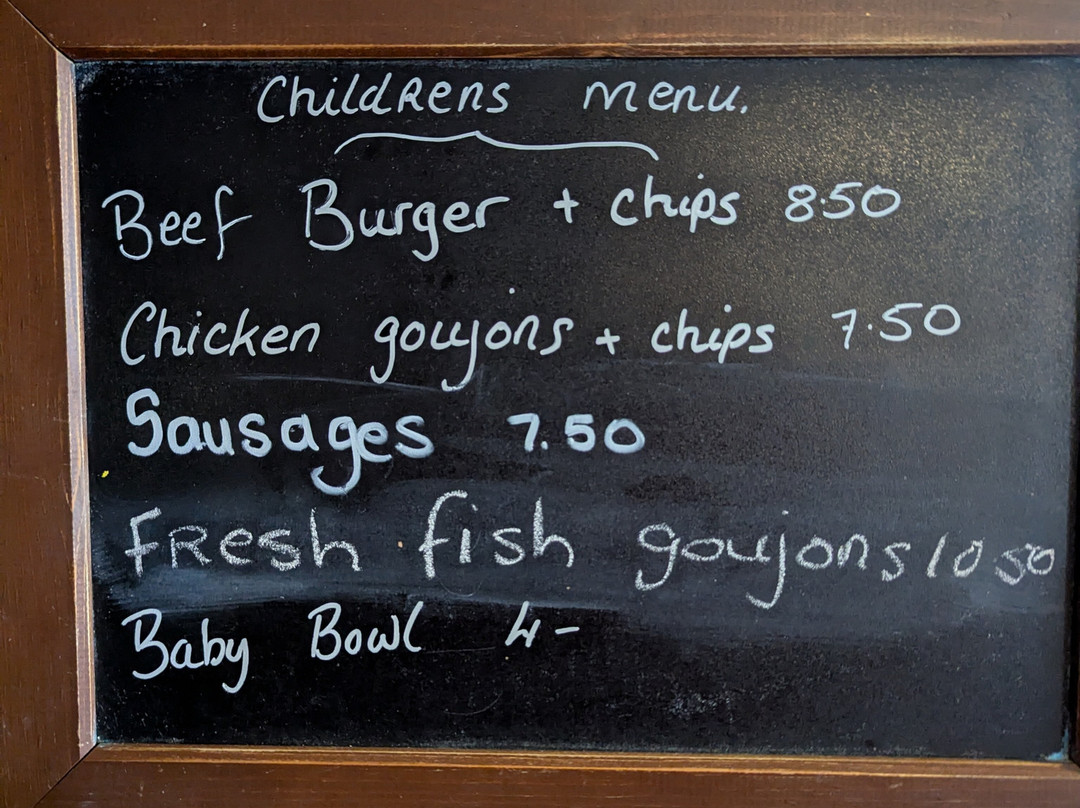 Childrens menu.
Beef Burger + chips 8.50
Chicken goujons + chips 7.50
Sausages 7.50
Fresh fish goujons 10 50
Baby Bowl 4-